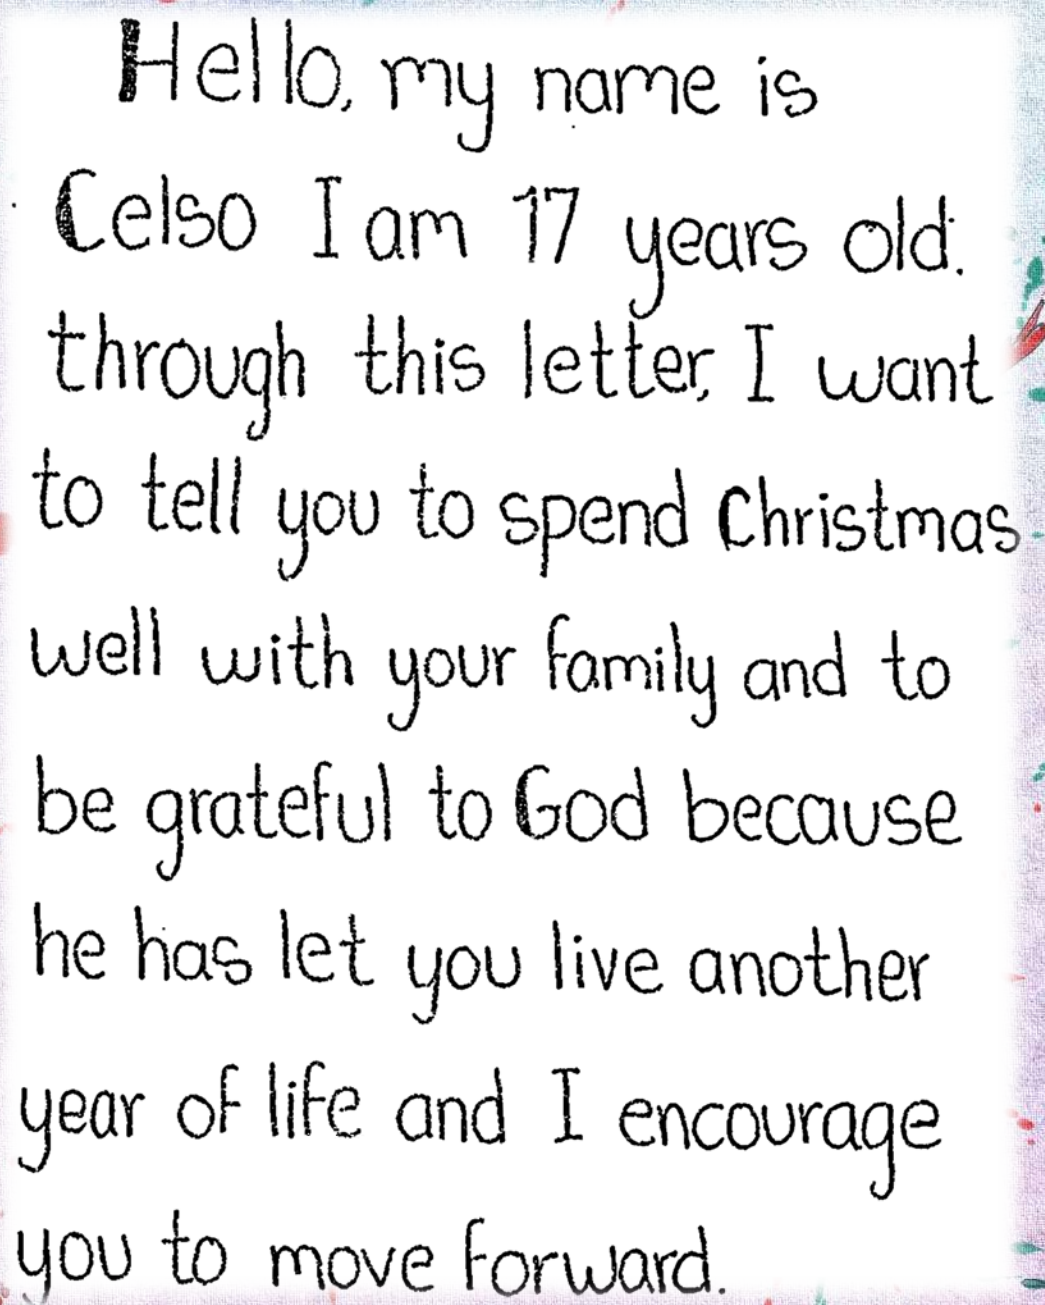 Hello, my name is
Celso I am 17 years old.
through this letter, I want
to tell you to spend Christmas
well with your family and to
be grateful to God because
he has let you live another
year of life and I encourage
you to move forward.